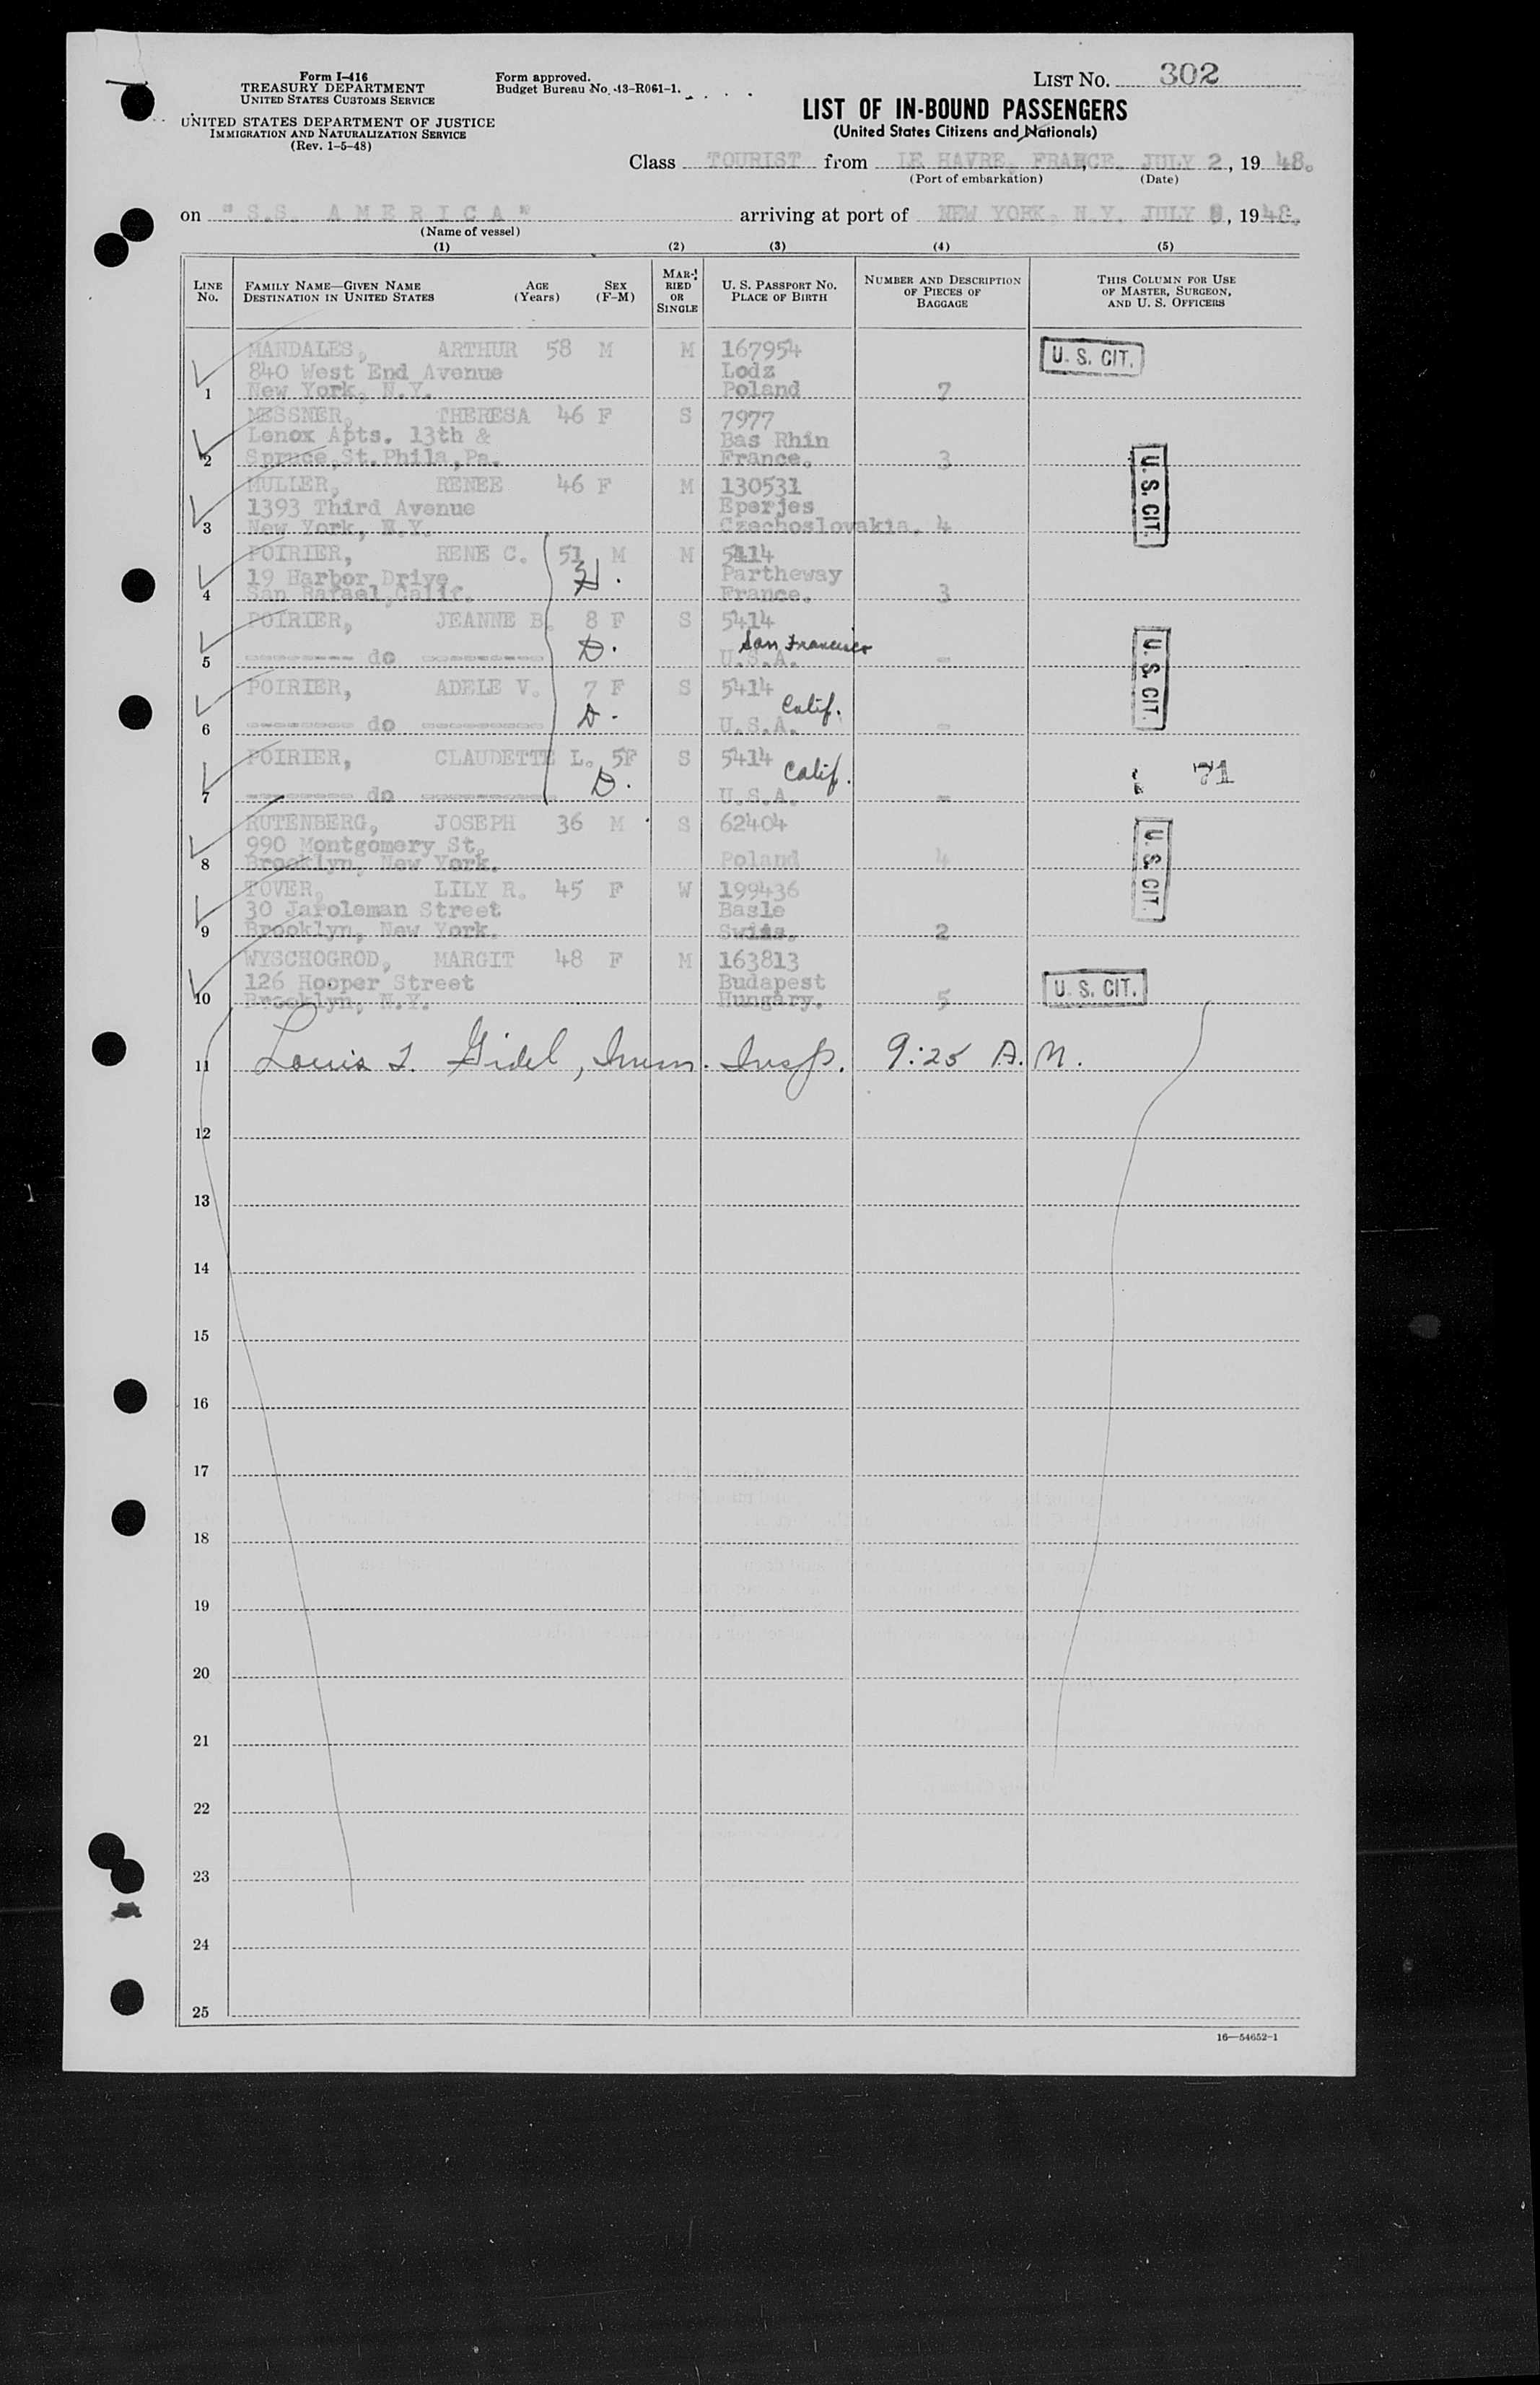 Form I-416
TREASURY DEPARTMENT
UNITED STATES CUSTOMS SERVICE
UNITED STATES DEPARTMENT OF JUSTICE
IMMIGRATION AND NATURALIZATION SERVICE
(Rev. 1-5-48)
Form approved.
Budget Bureau No. 43-R061-1.
LIST NO. 302
LIST OF IN-BOUND PASSENGERS
(United States Citizens and Nationals)
Class TOURIST from LE HAVRE, FRANCE. JULY 2, 19 48.
(Port of embarkation) (Date)
on "S.S. AMERICA" arriving at port of NEW YORK, N.Y. JULY , 19 48.
(Name of vessel)
(1) (2) (3) (4) (5)
LINE NO.
FAMILY NAME—GIVEN NAME
DESTINATION IN UNITED STATES
AGE (Years)
SEX (F-M)
MARRIED OR SINGLE
U. S. PASSPORT NO.
PLACE OF BIRTH
NUMBER AND DESCRIPTION OF PIECES OF BAGGAGE
THIS COLUMN FOR USE OF MASTER, SURGEON, AND U. S. OFFICERS
MANDALES, ARTHUR 58 M M 167954 U. S. CIT.
840 West End Avenue Lodz
1 New York, N.Y. Poland 7
MESSNER, THERESA 46 F S 7977
Lenox Apts. 13th & Bas Rhin
2 Spruce,St.Phila,Pa. France. 3 U. S. CIT.
MULLER, RENEE 46 F M 130531
1393 Third Avenue Eperjes
3 New York, N.Y. Czechoslovakia. 4
POIRIER, RENE C. 51 M M 5414
19 Harbor Drive H. Partheway
4 San Rafael,Calif. France. 3
POIRIER, JEANNE B. 8 F S 5414
San Francisco
5 -------- do --------- D. U.S.A. - U. S. CIT.
POIRIER, ADELE V. 7 F S 5414
Calif.
6 -------- do --------- D. U.S.A. -
POIRIER, CLAUDETTE L. 5F S 5414
Calif. 71
7 -------- do --------- D. U.S.A. -
RUTENBERG, JOSEPH 36 M S 62404
990 Montgomery St.
8 Brooklyn, New York. Poland 4 U. S. CIT.
TOVER, LILY R. 45 F W 199436
30 Jaroleman Street Basle
9 Brooklyn, New York. Swiss. 2
WYSCHOGROD, MARGIT 48 F M 163813
126 Hooper Street Budapest U. S. CIT.
10 Brooklyn, N.Y. Hungary. 5
11 Louis I. Gidel, Imm. Insp. 9:25 A.M.
12
13
14
15
16
17
18
19
20
21
22
23
24
25
16—54652-1